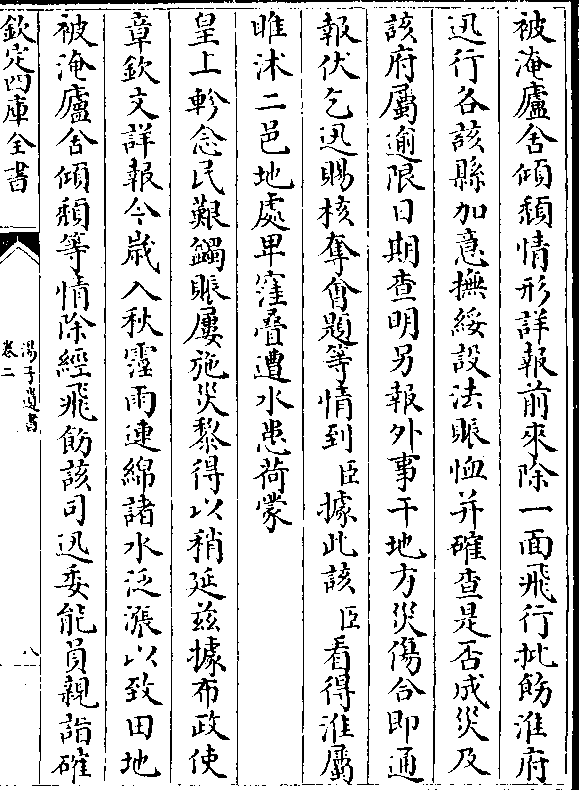 被淹廬舍傾頽情形詳報前來除一面飛行批飭淮府
迅行各該縣加意撫綏設法賑恤并確查是否成災及
該府屬逾限日期查明另報外事干地方災傷合即通
報伏乞迅賜核奪會題等情到臣據此該臣看得淮屬
睢沭二邑地處卑窪叠遭水患荷蒙
皇上軫念民艱蠲賑屢施災黎得以稍延兹據布政使
章欽文詳報今歲入秋霪雨連綿諸水泛漲以致田地
被淹廬舍傾頽等情除經飛飭該司迅委能員親詣確
欽定四庫全書
湯子遺書
卷二
八